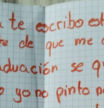 te escribo est
re de que me
aduación se q
o yo no pinto n